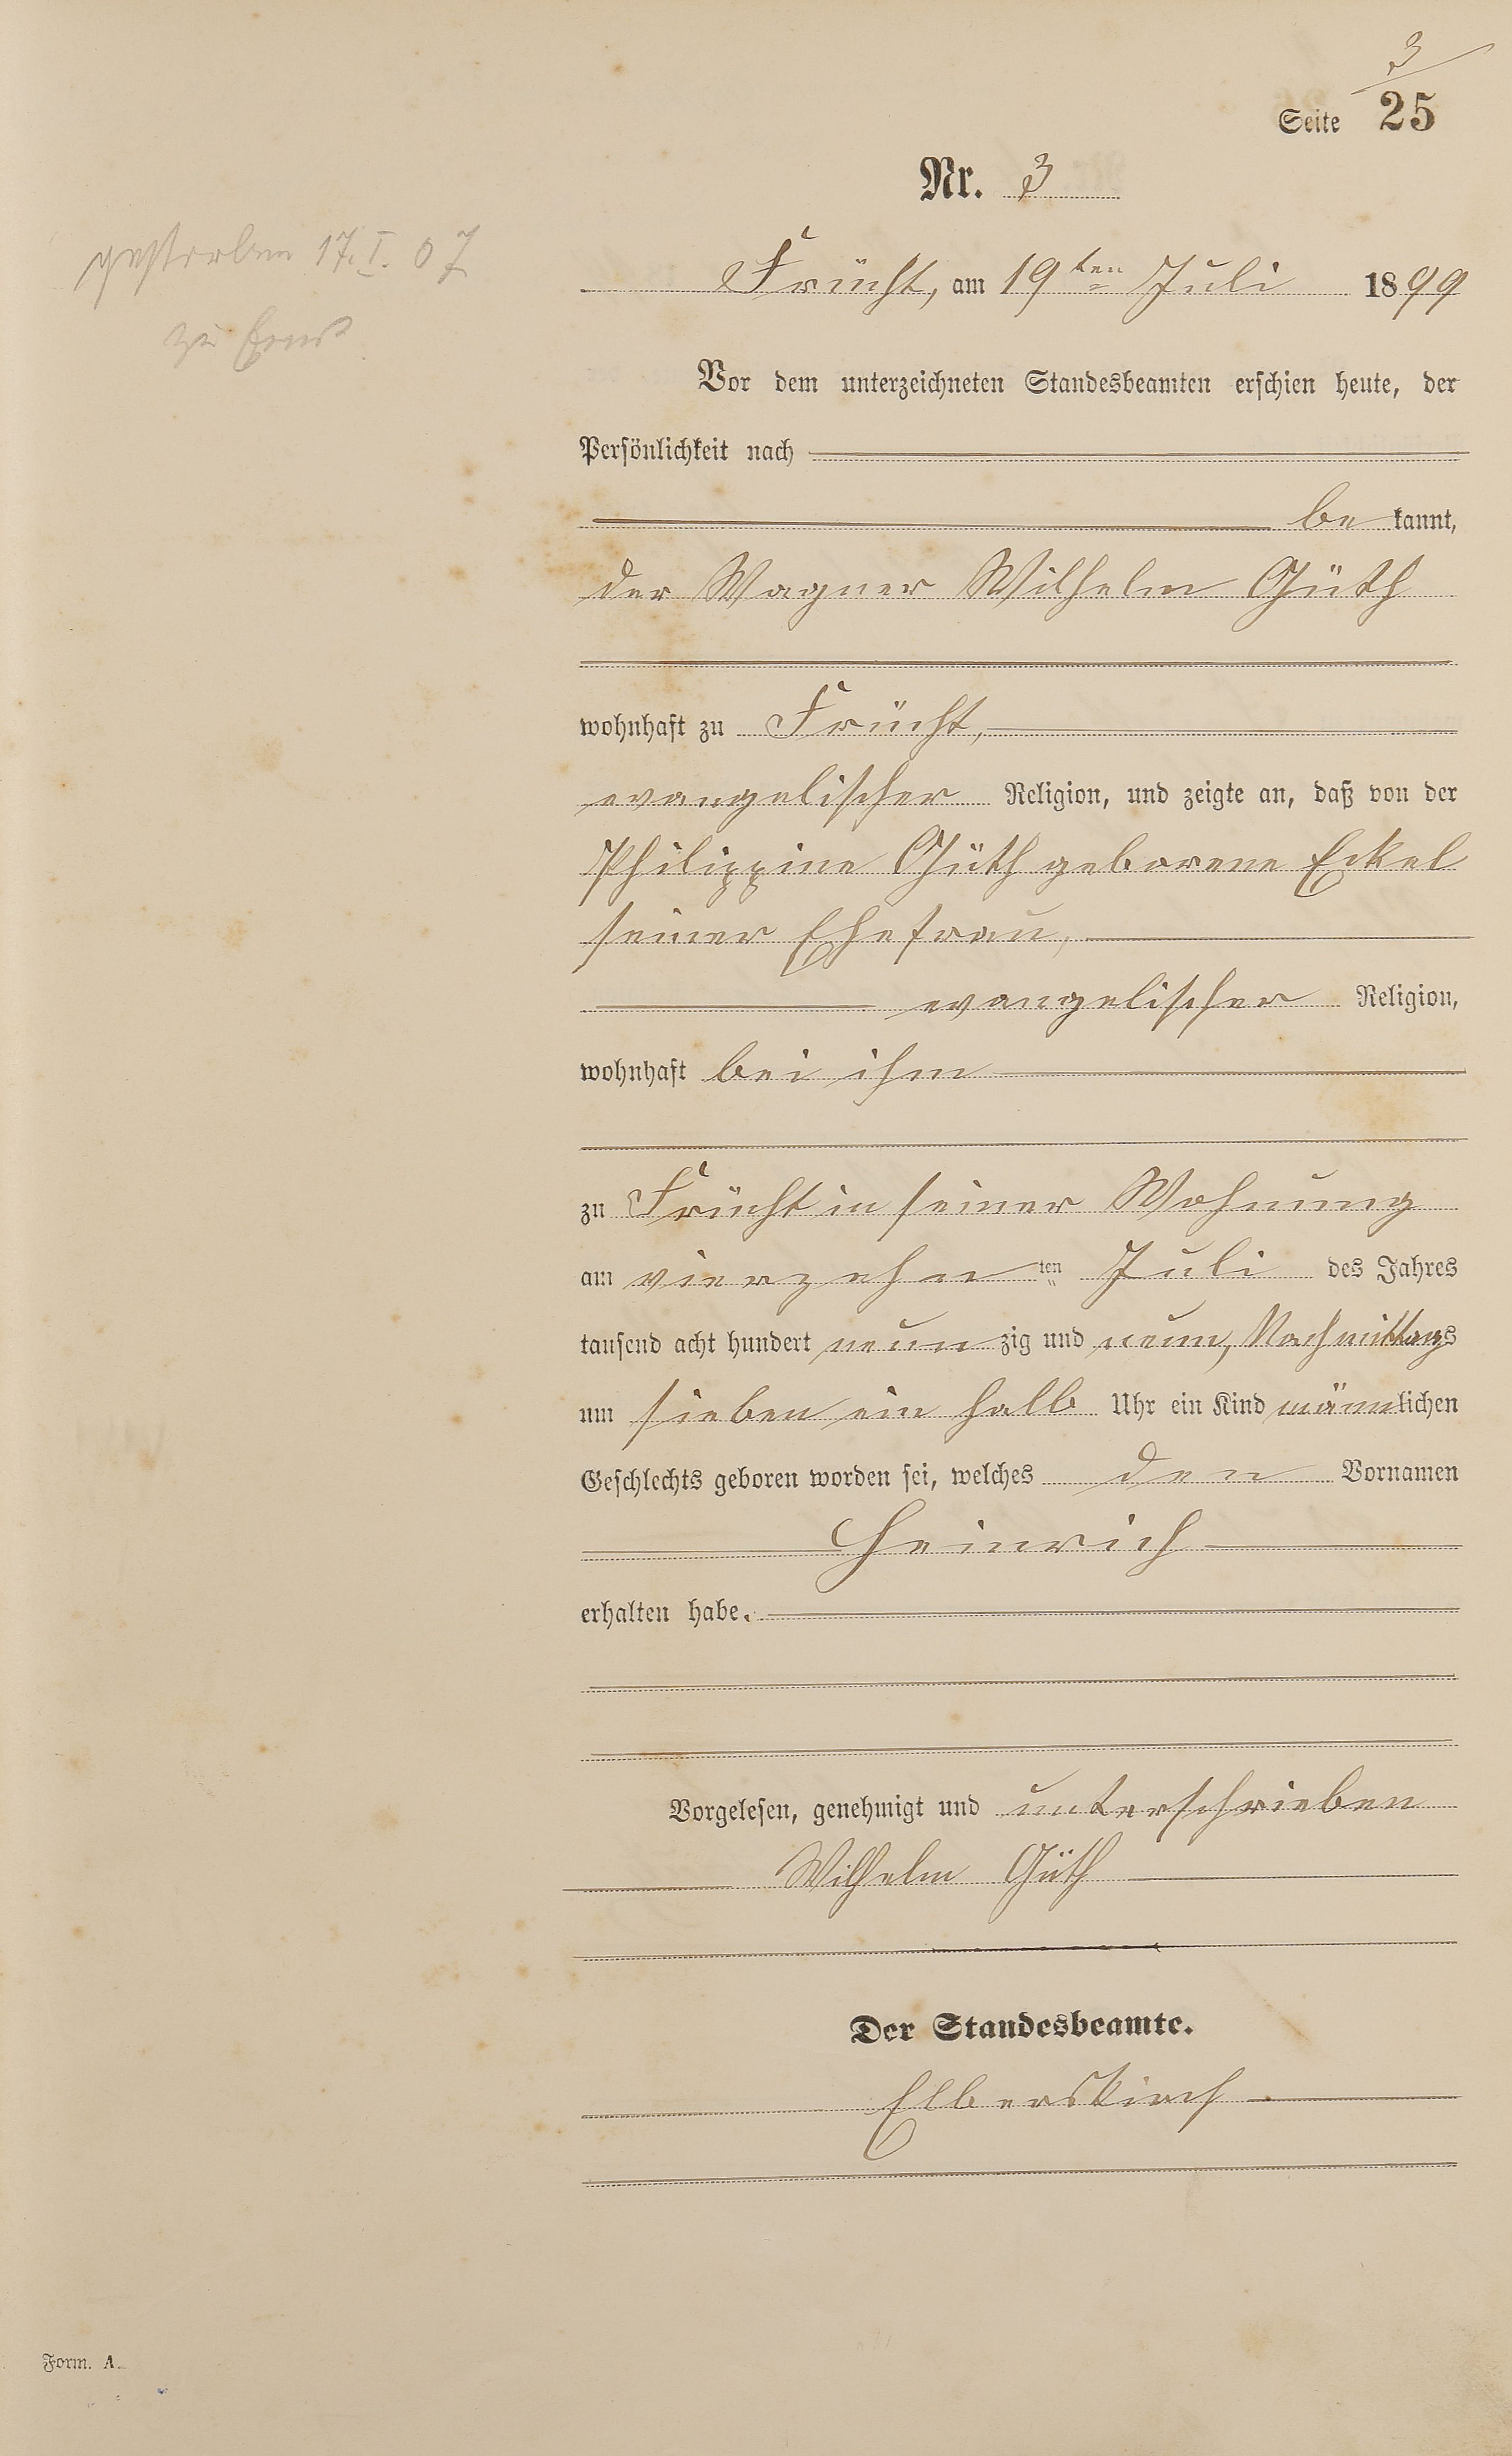 3
Seite 25
Nr. 3
gestorben 17. I. 07
zu Ems
Frücht, am 19ten Juli 1899
Vor dem unterzeichneten Standesbeamten erschien heute, der
Persönlichkeit nach
be kannt,
der Wagner Wilhelm Güth
wohnhaft zu Frücht,
evangelischer Religion, und zeigte an, daß von der
Philippine Güth geborene Eckel
seiner Ehefrau,
evangelischer Religion,
wohnhaft bei ihm
zu Frücht in seiner Wohnung
am vierzehn ten Juli des Jahres
tausend acht hundert neun zig und neun, Nachmittags
um sieben ein halb Uhr ein Kind männlichen
Geschlechts geboren worden sei, welches den Vornamen
Heinrich
erhalten habe.
Vorgelesen, genehmigt und unterschrieben
Wilhelm Güth
Der Standesbeamte.
Elberskirch
Form. A.